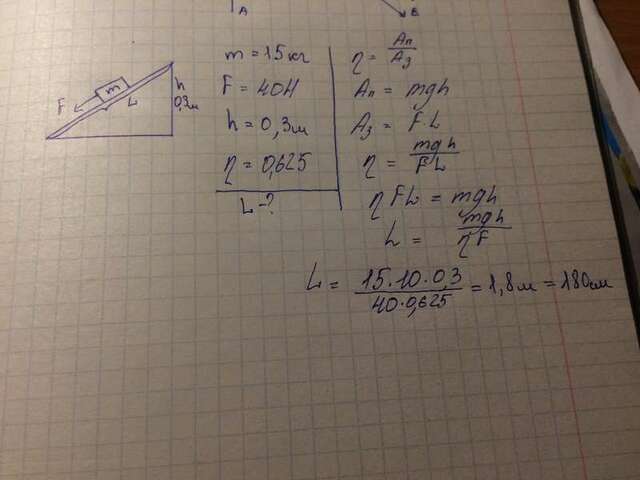 F
m
L
h
0,3м
m = 15 кг
F = 40 Н
h = 0,3 м
η = 0,625
L - ?
η = Aп/Aз
Aп = mgh
Aз = FL
η = mgh/FL
η FL = mgh
L = mgh/ηF
L = 15·10·0,3/40·0,625 = 1,8 м = 180 см